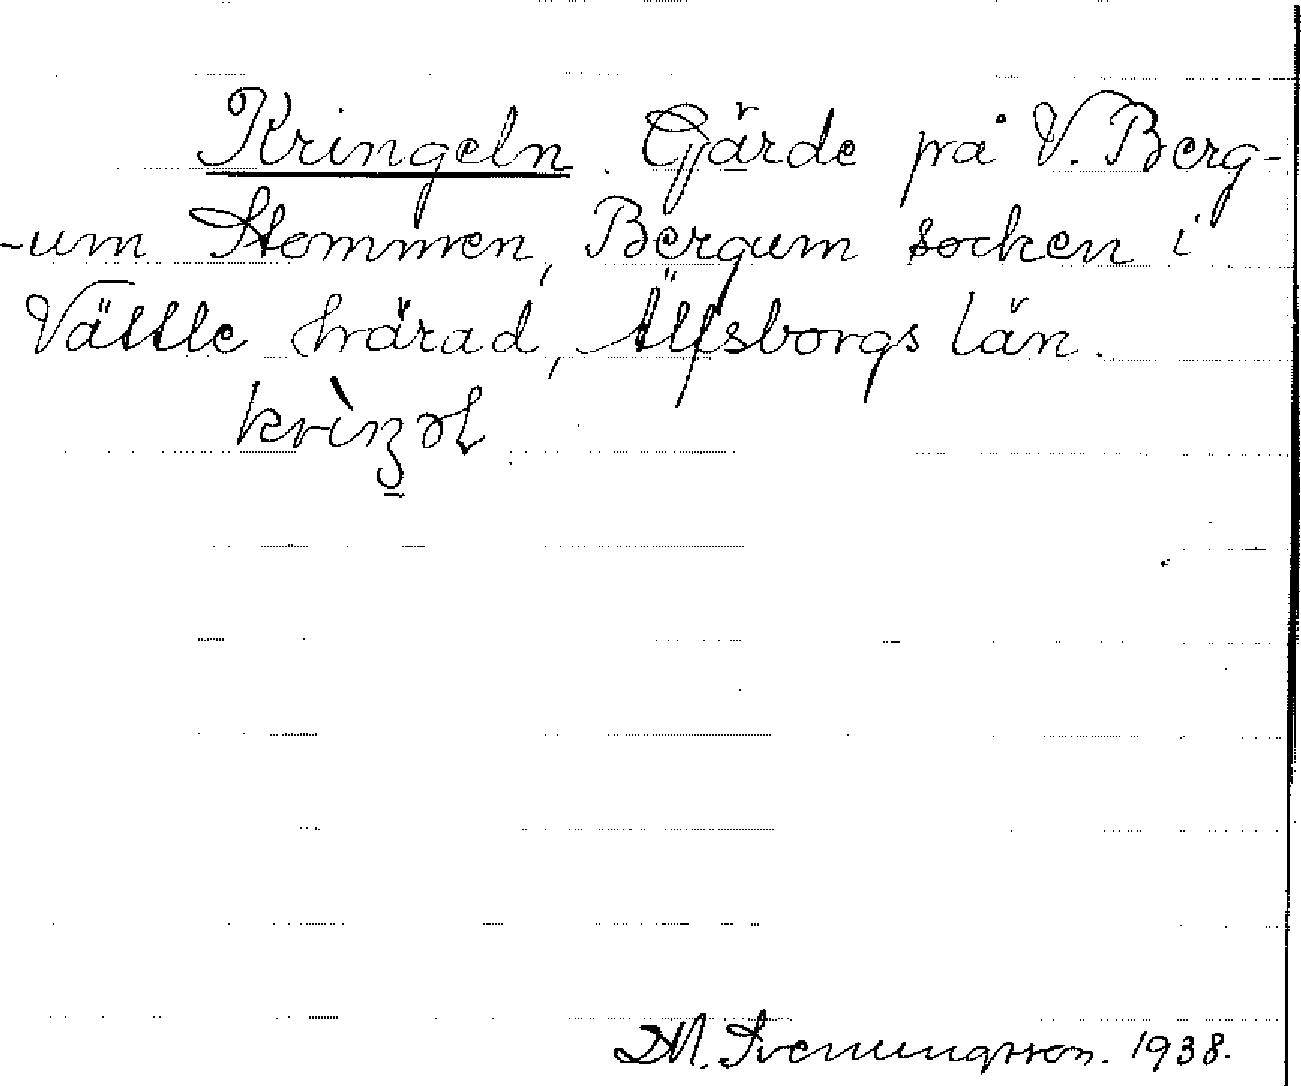 Kringeln. Gärde på V. Berg-
-um Stommen, Bergum socken i
Vättle härad, Älfsborgs län.
M. Svenungsson. 1938.